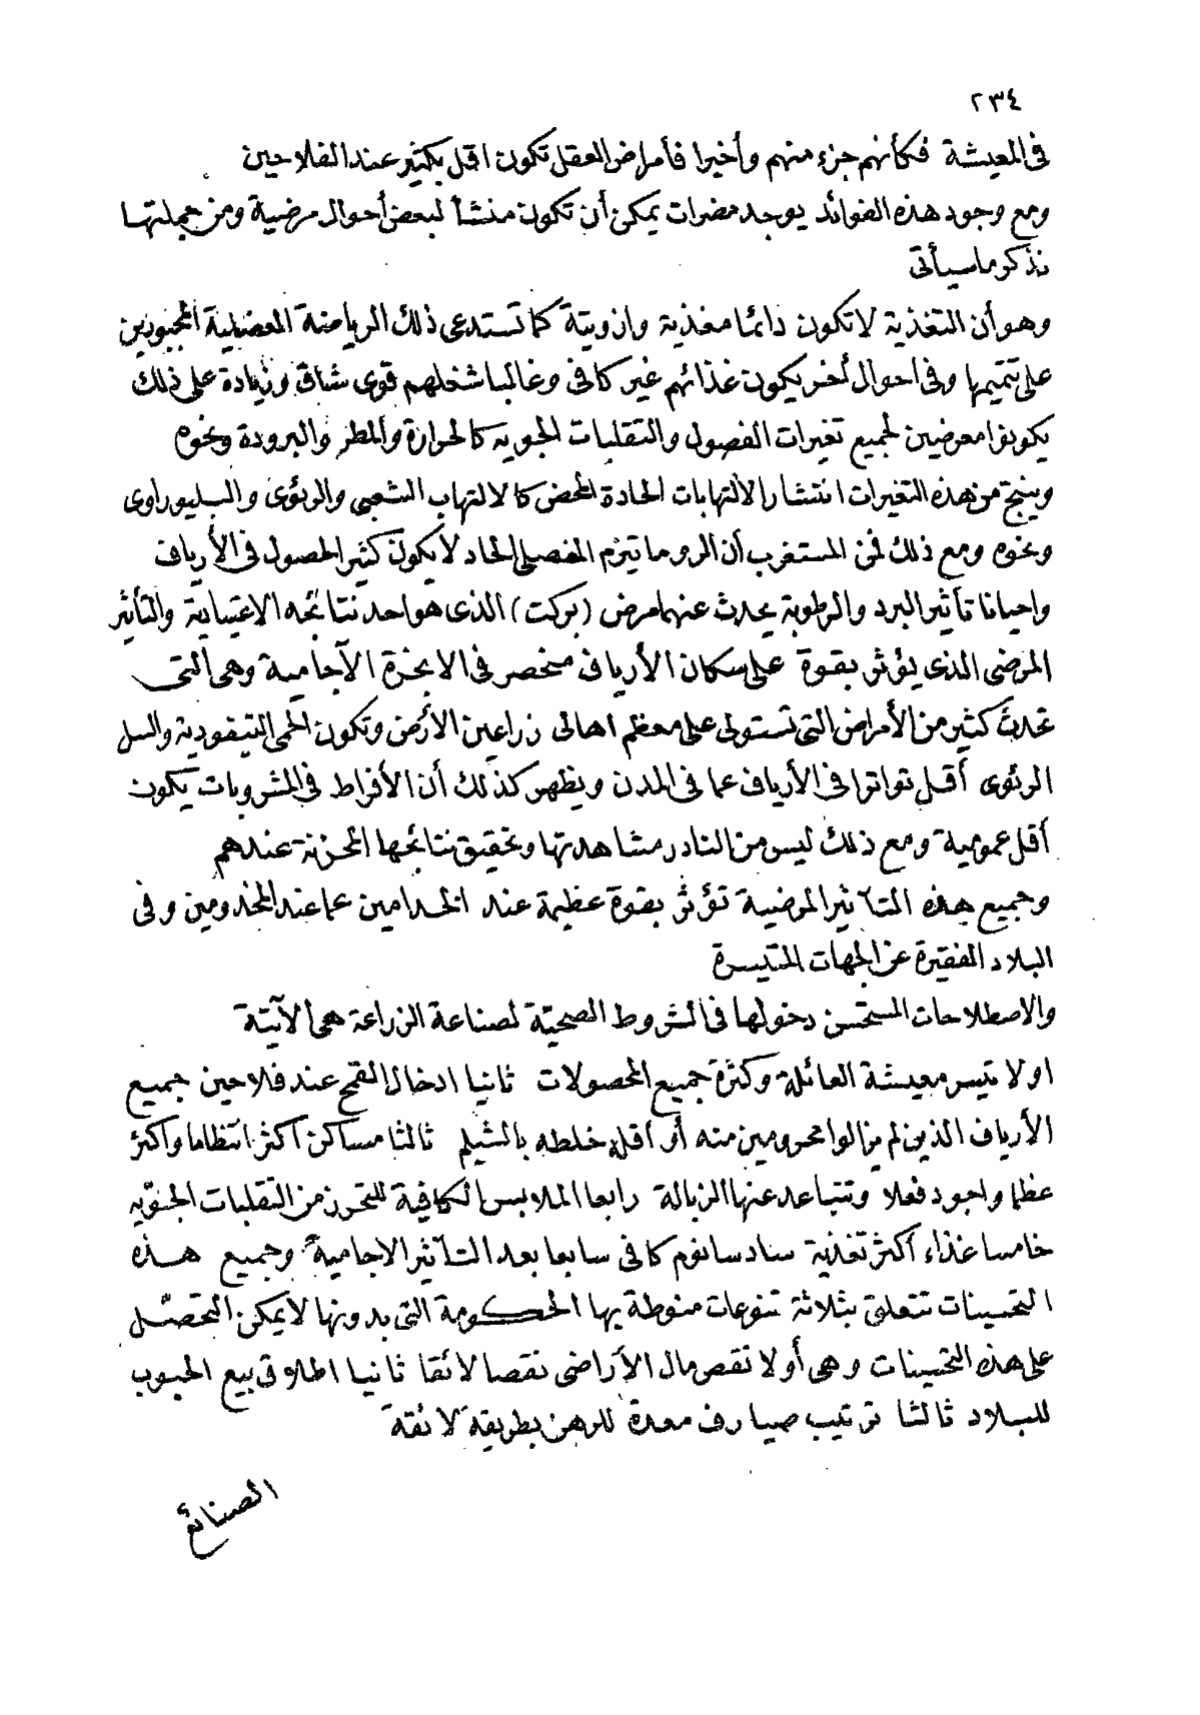 ٢٣٤
فى المعيشة فكأنهم جزء منهم وأخيرا فأمراض العقل تكون اقل بكثير عند الفلاحين
ومع وجود هذه الفوائد يوجد مضرات يمكن أن تكون منشأ لبعض أحوال مرضية ومن جملتها
نذكر ما سيأتى
وهو أن التغذية لا تكون دائما مغذية وازوتية كما تستدعى ذلك الرياضة العضلية المجبورين
على تتميمها وفى احوال أخر يكون غذائهم غير كافى وغالبا شغلهم قوى شاق وزيادة على ذلك
يكونوا معرضين لجميع تغيرات الفصول والتقلبات الجويه كالحرارة والمطر والبرودة ونحوه
وينتج من هذه التغيرات انتشار الالتهابات الحادة المحض كالالتهاب الشعبى والرئوى والبليوراوى
ونحوه ومع ذلك فمن المستغرب أن الروماتيزم المفصلى الحاد لا يكون كثير الحصول فى الأرياف
واحيانا تأثير البرد والرطوبة يحدث عنهما مرض (بركت) الذى هو احد نتائجه الاعتيادية والتأثير
المرضى الذى يؤثر بقوة على سكان الأرياف منحصر فى الابخرة الآجامية وهى التى
تحدث كثير من الأمراض التى تستولى على معظم اهالى زراعين الأرض وتكون الحمى التيفودية والسل
الرئوى أقل تواترا فى الأرياف عما فى المدن ويظهر كذلك أن الأفراط فى المشروبات يكون
أقل عمومية ومع ذلك ليس من النادر مشاهدتها وتحقيق نتائجها المحزنة عندهم
وجميع هذه التآثير المرضية تؤثر بقوة عظيمة عند الخدامين عما عند المخدومين وفى
البلاد الفقيرة عن الجهات المتيسرة
والاصطلاحات المستحسن دخولها فى الشروط الصحية لصناعة الزراعة هى الآتية
اولا تيسر معيشة العائلة وكثرة جميع المحصولات ثانيا ادخال القمح عند فلاحين جميع
الأرياف الذين لم يزالوا محرومين منه أو أقله خلطه بالشيلم ثالثا مساكن اكثر انتظاما واكثر
عظما واجود فعلا وتتباعد عنها الزبالة رابعا الملابس الكافية للتحرز من التقلبات الجويه
خامسا غذاء أكثر تغذية سادسا نوم كافى سابعا بعد التآثير الاجامية وجميع هذه
التحسينات تتعلق بثلاثة تنوعات منوطة بها الحكومة التى بدونها لا يمكن التحصل
على هذه التحسينات وهى أولا نقص مال الأراضى نقصا لائقا ثانيا اطلاق بيع الحبوب
للبلاد ثالثا ترتيب صيارف معدة للرهن بطريقة لائقة
الصنائع